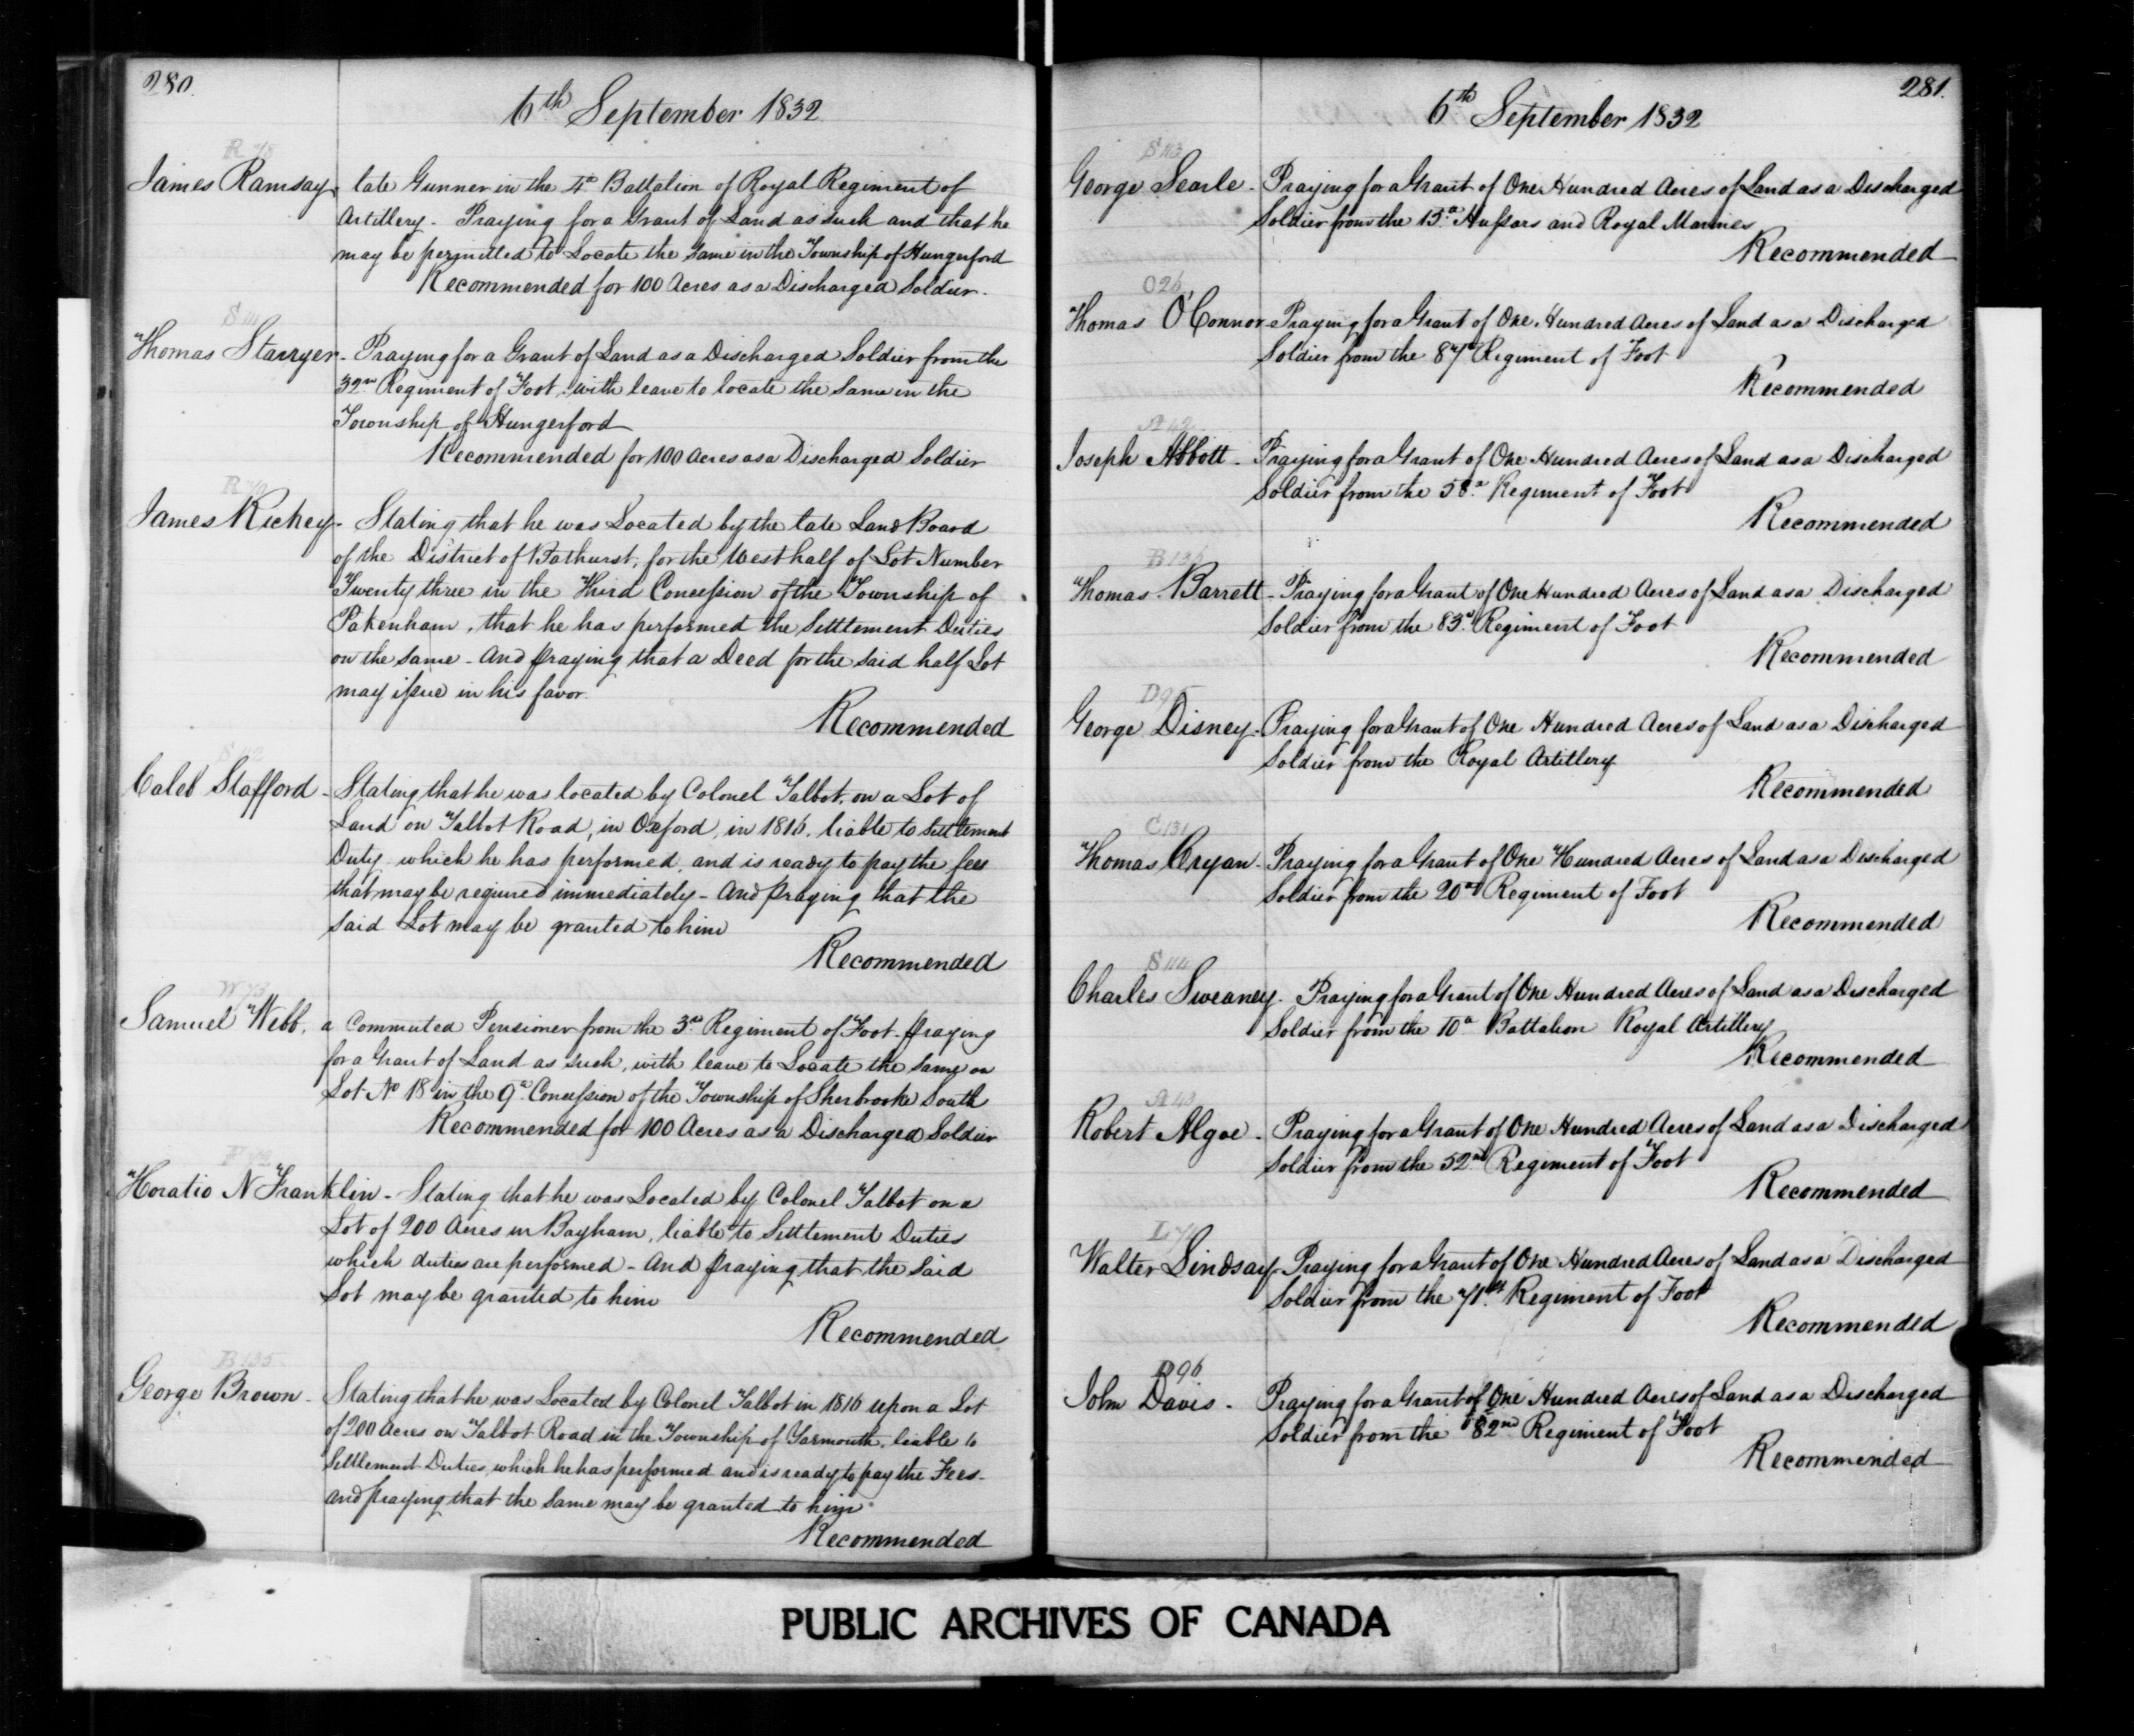 280.
6th September 1832
James Ramsay, late Gunner in the 4th Battalion of Royal Regiment of
Artillery. Praying for a Grant of Land as such and that he
may be permitted to Locate the same in the Township of Hungerford
Recommended for 100 Acres as a Discharged Soldier.
S 111
Thomas Starryer - Praying for a Grant of Land as a Discharged Soldier from the
32nd Regiment of Foot, with leave to locate the same in the
Township of Hungerford
Recommended for 100 Acres as a Discharged Soldier
James Richey - Stating that he was Located by the late Land Board
of the District of Bathurst, for the West half of Lot Number
Twenty three in the Third Concession of the Township of
Pakenham, that he has performed the Settlement Duties
on the same - And praying that a Deed for the said half Lot
may issue in his favor.
Recommended
S 112
Caleb Stafford - Stating that he was located by Colonel Talbot, on a Lot of
Land on Talbot Road, in Oxford, in 1816, liable to Settlement
Duty which he has performed, and is ready to pay the fees
that may be required immediately - And praying that the
said Lot may be granted to him
Recommended
W 73
Samuel Webb, a Commuted Pensioner from the 3rd Regiment of Foot - praying
for a Grant of Land as such, with leave to Locate the same on
Lot No 18 in the 9th Concession of the Township of Sherbrooke South
Recommended for 100 Acres as a Discharged Soldier
Horatio N Franklin - Stating that he was Located by Colonel Talbot on a
Lot of 200 Acres in Bayham, liable to Settlement Duties
which duties are performed - And praying that the said
Lot may be granted to him
Recommended
B 135
George Brown - Stating that he was Located by Colonel Talbot in 1816 upon a Lot
of 200 Acres on Talbot Road in the Township of Yarmouth, liable to
Settlement Duties, which he has performed and is ready to pay the Fees -
and praying that the same may be granted to him
Recommended
281.
6th September 1832
S 113
George Searle - Praying for a Grant of One Hundred Acres of Land as a Discharged
Soldier from the 15th Hussars and Royal Marines
Recommended
O 26
Thomas O'Connor - Praying for a Grant of One Hundred Acres of Land as a Discharged
Soldier from the 87th Regiment of Foot
Recommended
A 42
Joseph Abbott - Praying for a Grant of One Hundred Acres of Land as a Discharged
Soldier from the 58th Regiment of Foot
Recommended
B 136
Thomas Barrett - Praying for a Grant of One Hundred Acres of Land as a Discharged
Soldier from the 83rd Regiment of Foot
Recommended
D 95
George Disney - Praying for a Grant of One Hundred Acres of Land as a Discharged
Soldier from the Royal Artillery
Recommended
C 131
Thomas Cryan - Praying for a Grant of One Hundred Acres of Land as a Discharged
Soldier from the 20th Regiment of Foot
Recommended
S 114
Charles Sweaney - Praying for a Grant of One Hundred Acres of Land as a Discharged
Soldier from the 10th Battalion Royal Artillery
Recommended
A 43
Robert Algoe - Praying for a Grant of One Hundred Acres of Land as a Discharged
Soldier from the 52nd Regiment of Foot
Recommended
Walter Lindsay - Praying for a Grant of One Hundred Acres of Land as a Discharged
Soldier from the 71st Regiment of Foot
Recommended
D 96
John Davis - Praying for a Grant of One Hundred Acres of Land as a Discharged
Soldier from the 82nd Regiment of Foot
Recommended
PUBLIC ARCHIVES OF CANADA